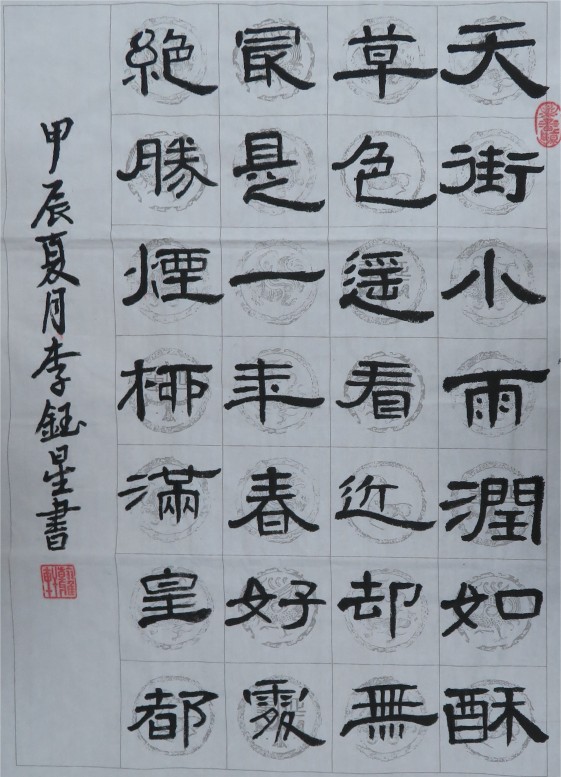 天街小雨潤如酥
草色遥看近却無
最是一年春好處
絶勝煙柳滿皇都
甲辰夏月李鈺星書